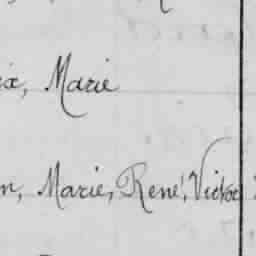 ix, Marie
n, Marie, René, Victor